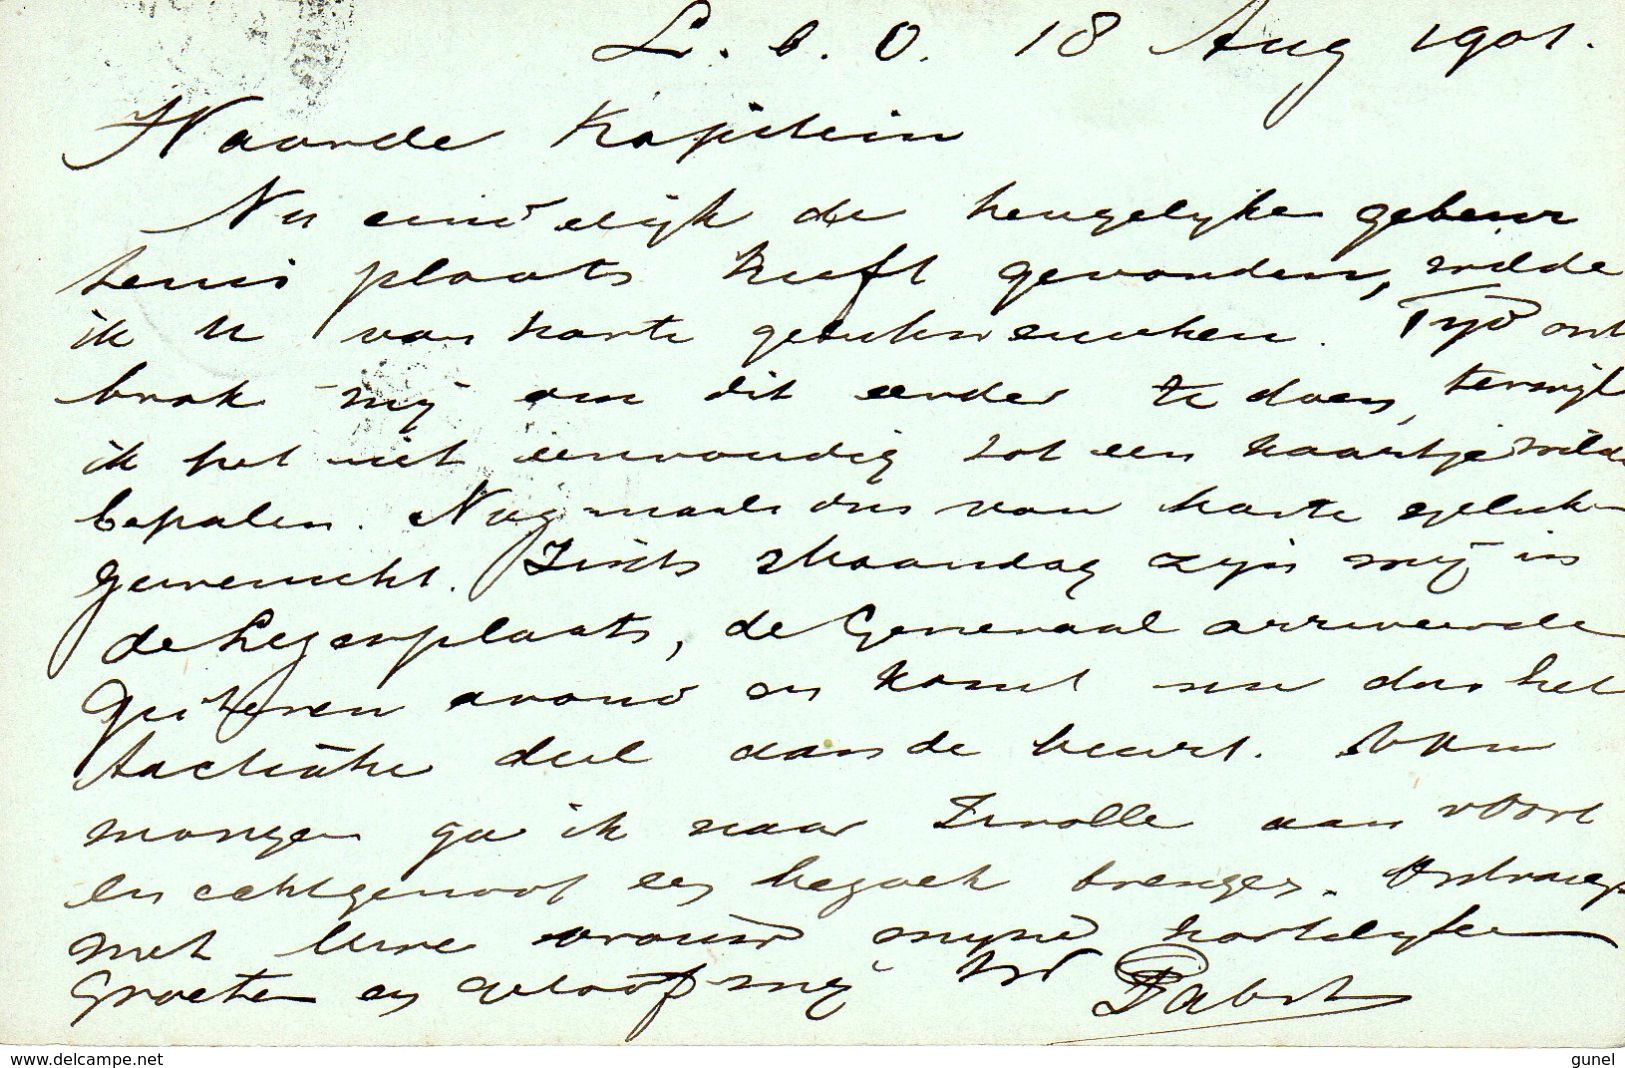 L. b. O. 18 Aug 1901.
Waarde Kapitein
Nu eindelijk de heugelijke gebeur
tenis plaats heeft gevonden, wilde
ik u van harte gelukwenschen. Tijd ont
brak mij om dit eerder te doen, terwijl
ik het niet eenvoudig tot een kaartje wilde
bepalen. Nogmaals dus van harte geluk
gewenscht. Sinds Maandag zijn wij in
de Legerplaats, de Generaal arriveerde
gisteren avond en komt nu dus het
tactische deel aan de beurt.
morgen ga ik naar Zwolle aan
en echtgenoot een bezoek brengen. Ontvang
met Uwe vrouw mijne hartelijke
Groeten en geloof mij
Pabst
www.delcampe.net
gunel